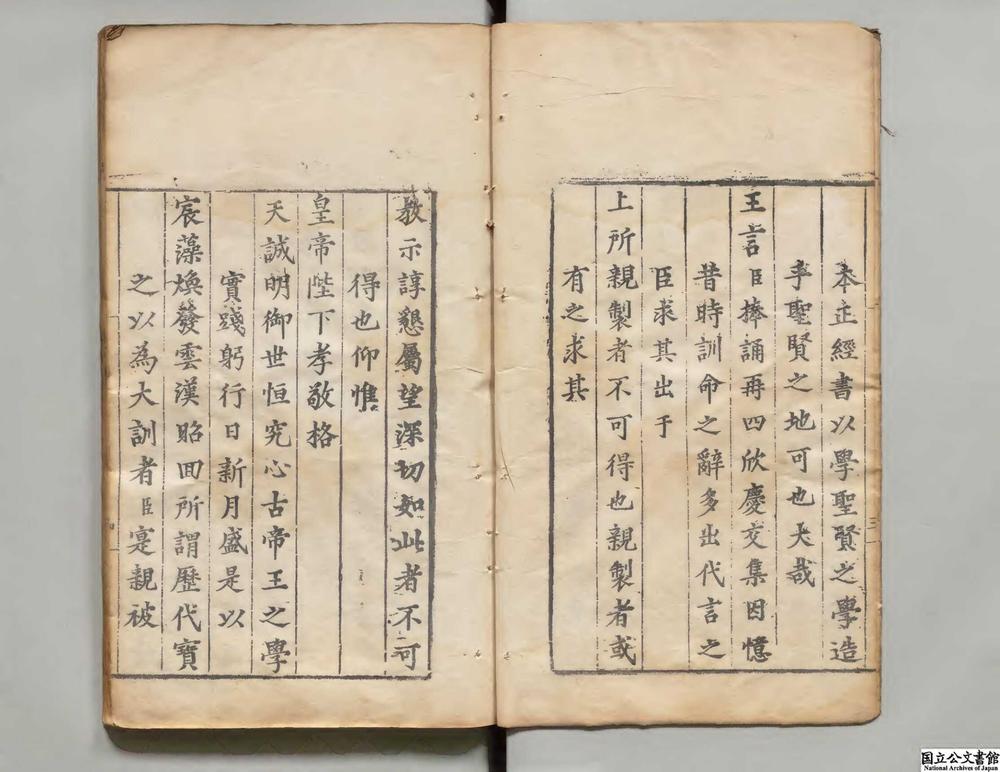 本正經書以學聖賢之學造
乎聖賢之地可也大哉
王言臣捧誦再四欣慶交集因憶
昔時訓命之辭多出代言之
臣求其出于
上所親製者不可得也親製者或
有之求其
教示諄懇屬望深切如此者不可
得也仰惟
皇帝陛下孝敬格
天誠明御世恒究心古帝王之學
實踐躬行日新月盛是以
宸藻煥發雲漢昭回所謂歷代寶
之以為大訓者臣寔親被
国立公文書館
National Archives of Japan